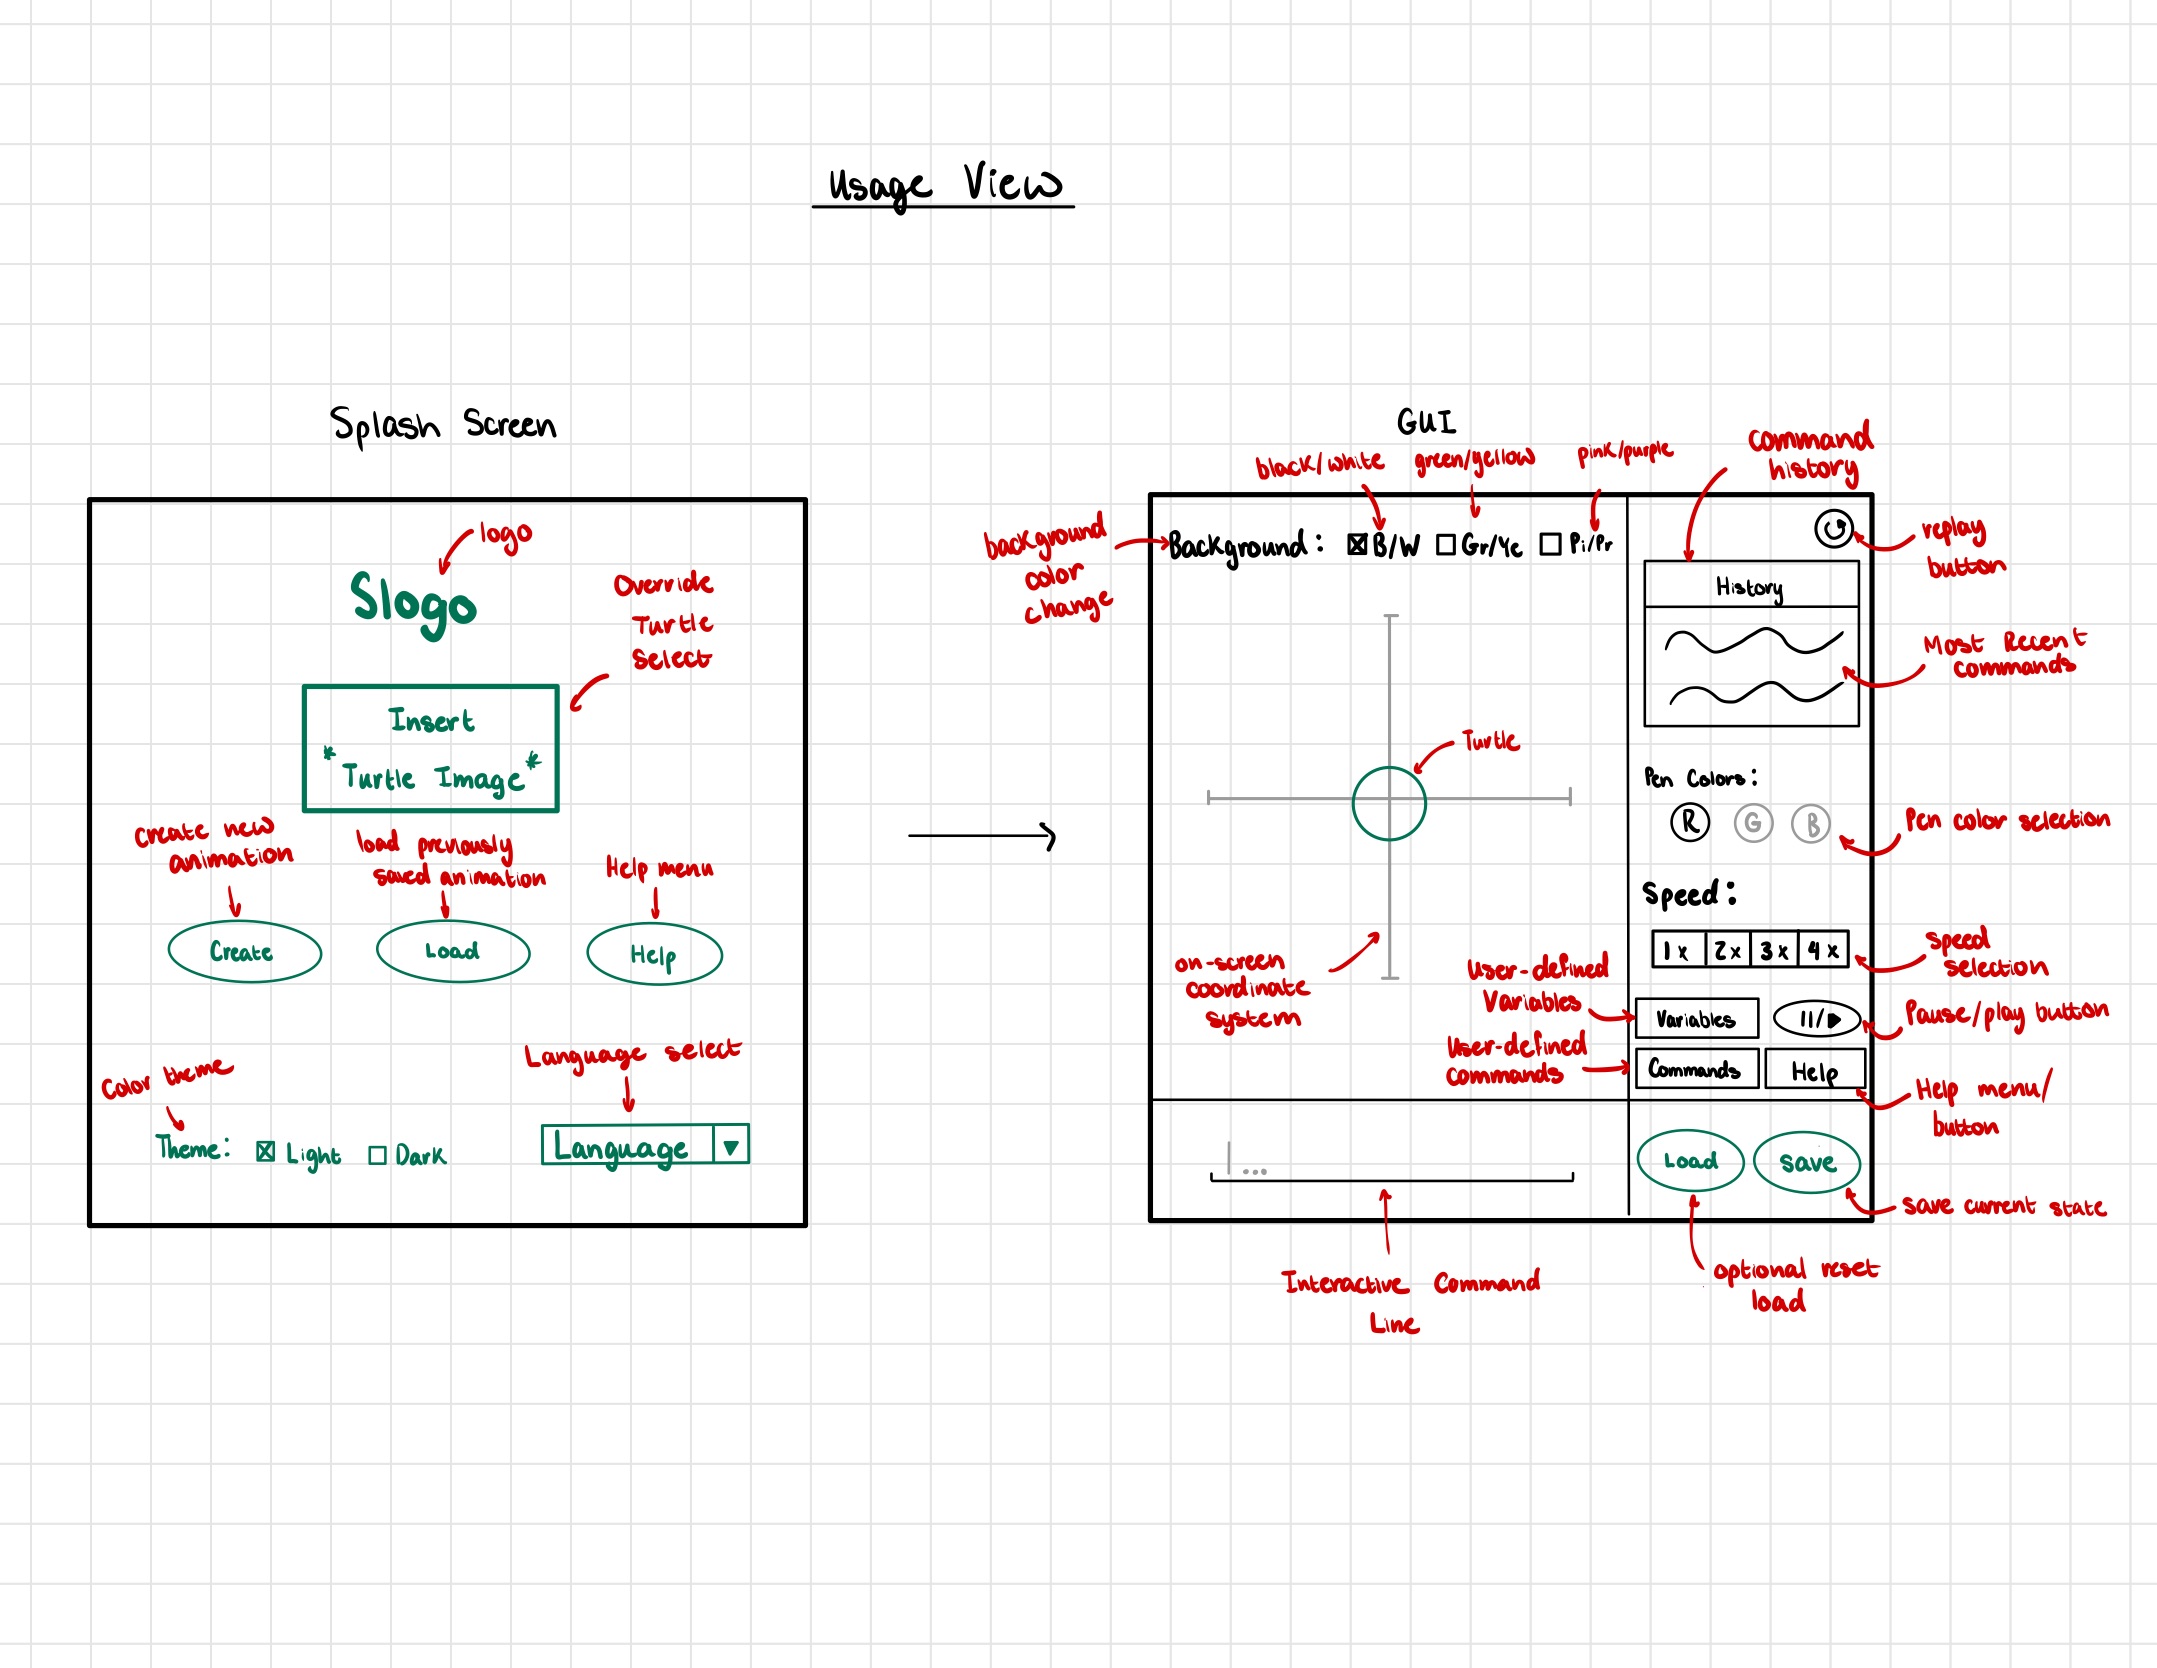 Usage View
Splash Screen
logo
Slogo
Override
Turtle
Select
Insert
* Turtle Image *
create new
animation
load previously
saved animation
Help menu
Create
Load
Help
Color theme
Language select
Theme: Light Dark
Language
GUI
black/white
green/yellow
pink/purple
command
history
background
color
change
Background: B/W Gr/Ye Pi/Pr
replay
button
History
Most Recent
commands
Turtle
Pen Colors:
R G B
Pen color selection
Speed:
1x 2x 3x 4x
Speed
selection
on-screen
coordinate
system
User-defined
Variables
Variables
Pause/play button
User-defined
commands
Commands
Help
Help menu/
button
...
Load
Save
save current state
Interactive Command
Line
optional reset
load